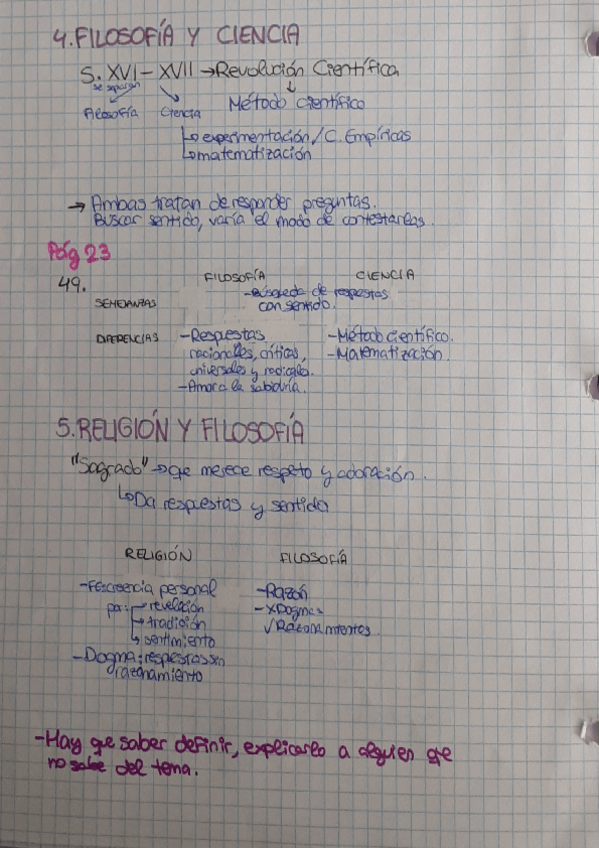 4. FILOSOFÍA Y CIENCIA
S. XVI - XVII → Revolución Científica
se separan ↓
Filosofía Ciencia Método científico
↳ experimentación / C. Empíricas
↳ matematización
→ Ambas tratan de responder preguntas.
Buscar sentido, varía el modo de contestarlas.
Pág 23
49. FILOSOFÍA CIENCIA
SEMEJANZAS -Búsqueda de respestas
con sentido.
DIFERENCIAS -Respuestas -Método científico.
racionales, críticas, -Matematización.
universales y radicales.
-Amor a la sabiduría.
5. RELIGIÓN Y FILOSOFÍA
"Sagrado" → que merece respeto y adoración.
↳ Da respuestas y sentido
RELIGIÓN FILOSOFÍA
-Fe: creencia personal -Razón
por: → revelación -X Dogmas
→ tradición √ Razonamientos.
↳ sentimiento
-Dogma: respestas sin
razonamiento
-Hay que saber definir, explicarlo a alguien que
no sabe del tema.